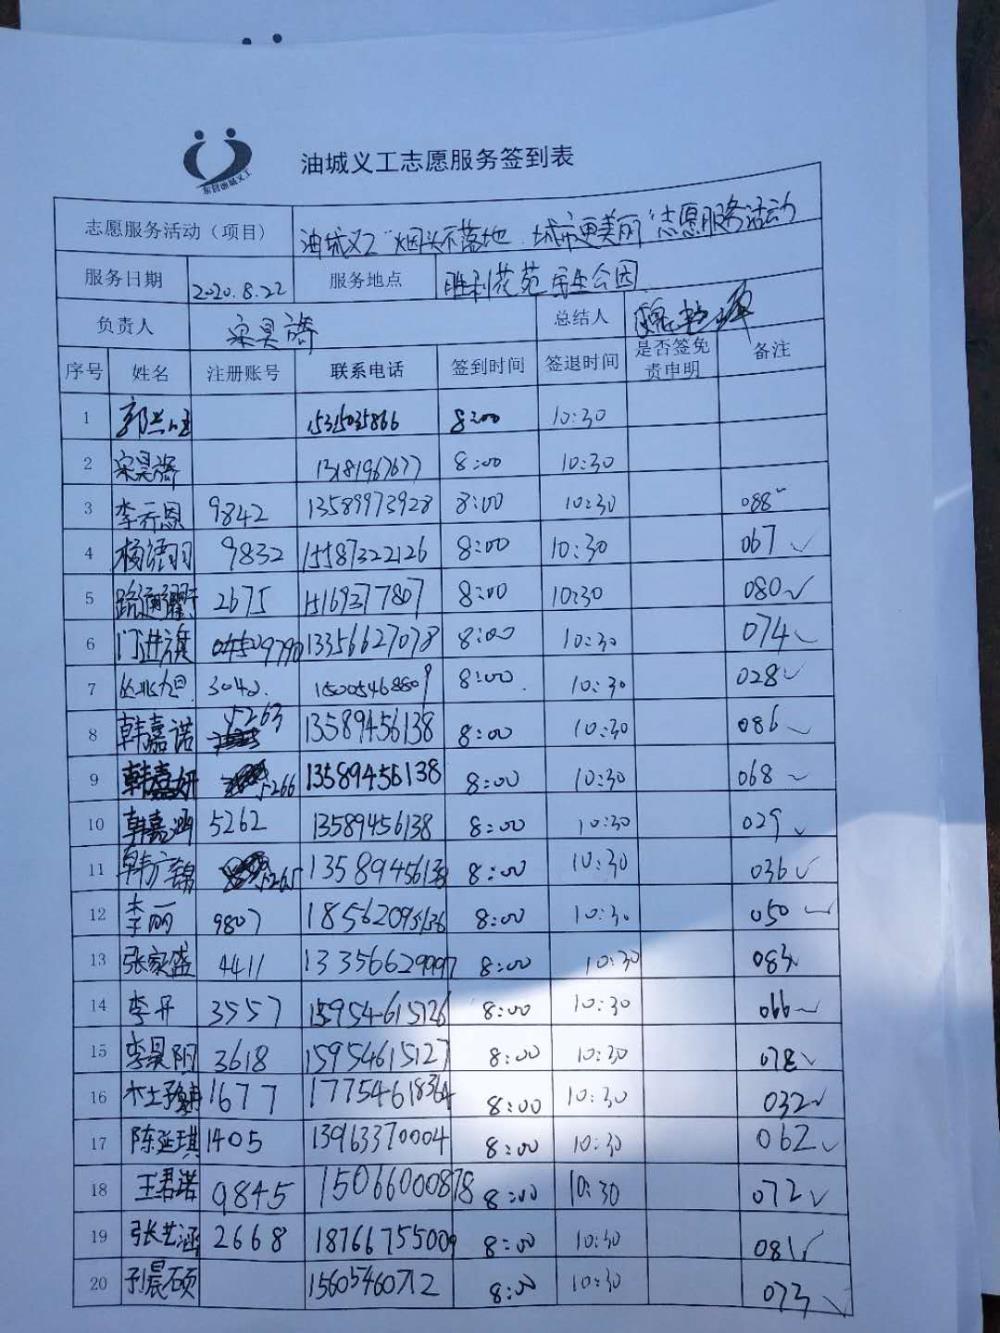 东营油城义工
油城义工志愿服务签到表
志愿服务活动（项目） 油城义工"烟头不落地 城市更美丽"志愿服务活动
服务日期 2020.8.22 服务地点 胜利花苑 民生公园
负责人 宋昊 总结人
序号 姓名 注册账号 联系电话 签到时间 签退时间 是否签免责申明 备注
1 郭 8:00 10:30
2 宋昊 13181967677 8:00 10:30
3 李乔恩 9842 13589973928 8:00 10:30 088
4 杨语羽 9832 15587322126 8:00 10:30 067 ✓
5 路 2675 15169377807 8:00 10:30 080 ✓
6 门进旗 9790 13356627078 8:00 10:30 074 ✓
7 丛兆旭 3042. 15005468509 8:00. 10:30 028 ✓
8 韩嘉诺 5263 13589456138 8:00 10:30 086 ✓
9 韩嘉妍 5266 13589456138 8:00 10:30 068 ✓
10 韩嘉涵 5262 13589456138 8:00 10:30 029 ✓
11 韩广锦 5265 13589456138 8:00 10:30 036 ✓
12 李丽 9807 18562095136 8:00 10:30 050 ✓
13 张家盛 4411 13356629997 8:00 10:30 083
14 李丹 3557 15954615126 8:00 10:30 066 ✓
15 李昊阳 3618 15954615127 8:00 10:30 078 ✓
16 1677 17754618364 8:00 10:30 032 ✓
17 陈延琪 1405 13963370004 8:00 10:30 062 ✓
18 王君诺 9845 15066000878 8:00 10:30 072 ✓
19 张艺涵 2668 18766755009 8:00 10:30 081 ✓
20 孙晨硕 15605460712 8:00 10:30 073 ✓